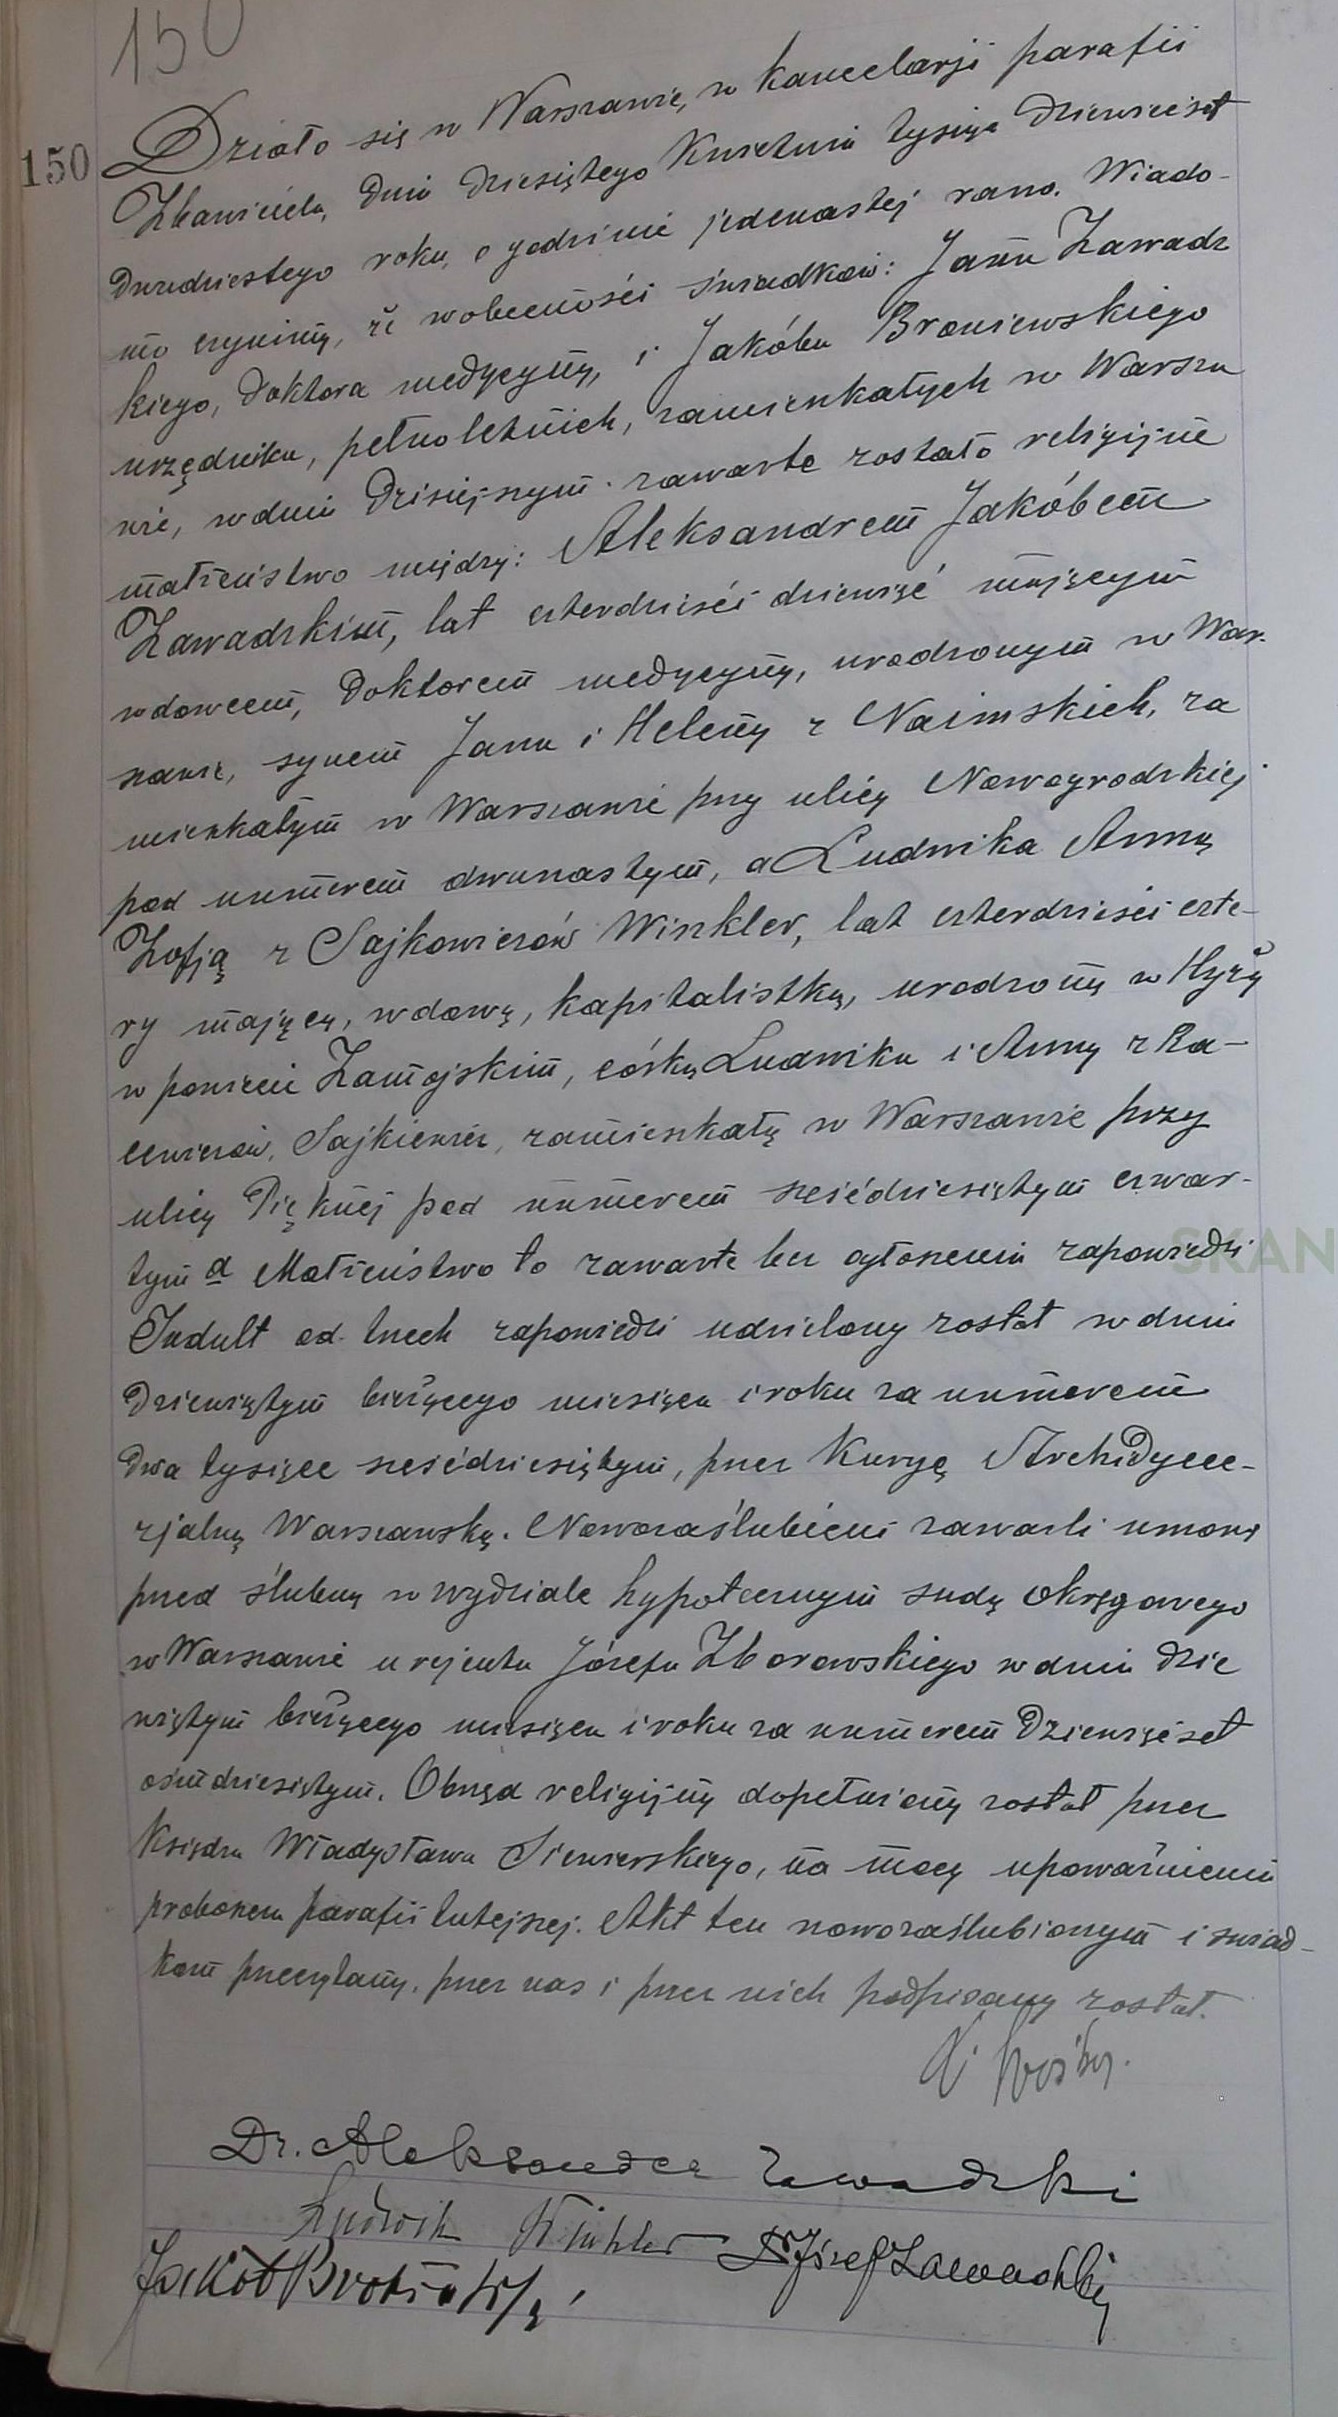 150
150
Działo się w Warszawie, w kancelarji parafii
Zbawiciela, dnia dziesiątego Kwietnia tysiąc dziewięćset
dwudziestego roku, o godzinie jedenastej rano. Wiado-
mo czynimy, że w obecności świadków: Jana Zawadz
kiego, Doktora medycyny, i Jakóba Broniewskiego
urzędnika, pełnoletnich, zamieszkałych w Warsza
wie, w dniu dzisiejszym zawarte zostało religijne
małżeństwo między: Aleksandrem Jakóbem
Zawadzkim, lat czterdzieści dziewięć mającym
wdowcem, Doktorem medycyny, urodzonym w War-
szawie, synem Jana i Heleny z Naimskich, za
mieszkałym w Warszawie przy ulicy Nowogrodzkiej
pod numerem dwunastym, a Ludwika Anną
Zofją z Sajkowiczów Winkler, lat czterdzieści czte-
ry mającą, wdową, kapitalistką, urodzoną w Hyży
w powiecie Zamojskim, córką Ludwika i Anny z Ka-
cewiczów, Sajkiewicz, zamieszkałą w Warszawie przy
ulicy Pięknej pod numerem sześćdziesiątym czwar-
tym a Małżeństwo to zawarte bez ogłoszenia zapowiedzi
Indult od trzech zapowiedzi udzielony został w dniu
dziewiątym bieżącego miesiąca i roku za numerem
dwa tysiące sześćdziesiątym, przez Kurję Archidyece-
zjalną Warszawską. Nowozaślubieni zawarli umowę
przed ślubną w wydziale hypotecznym sudą okręgowego
w Warszawie u rejenta Józefa Zborowskiego w dniu dzie
wiątym bieżącego miesiąca i roku za numerem dziewięćset
ośmdziesiątym. Obrząd religijny dopełniony został przez
Księdza Władysława Siewierskiego, na mocy upoważnienia
proboszcza parafii tutejszej. Akt ten nowozaślubionym i świad-
kom przeczytany, przez nas i przez nich podpisany został.
Dr. Aleksander Zawadzki
Ludwik Winkler Dr Józef Zawadzki
Jakób